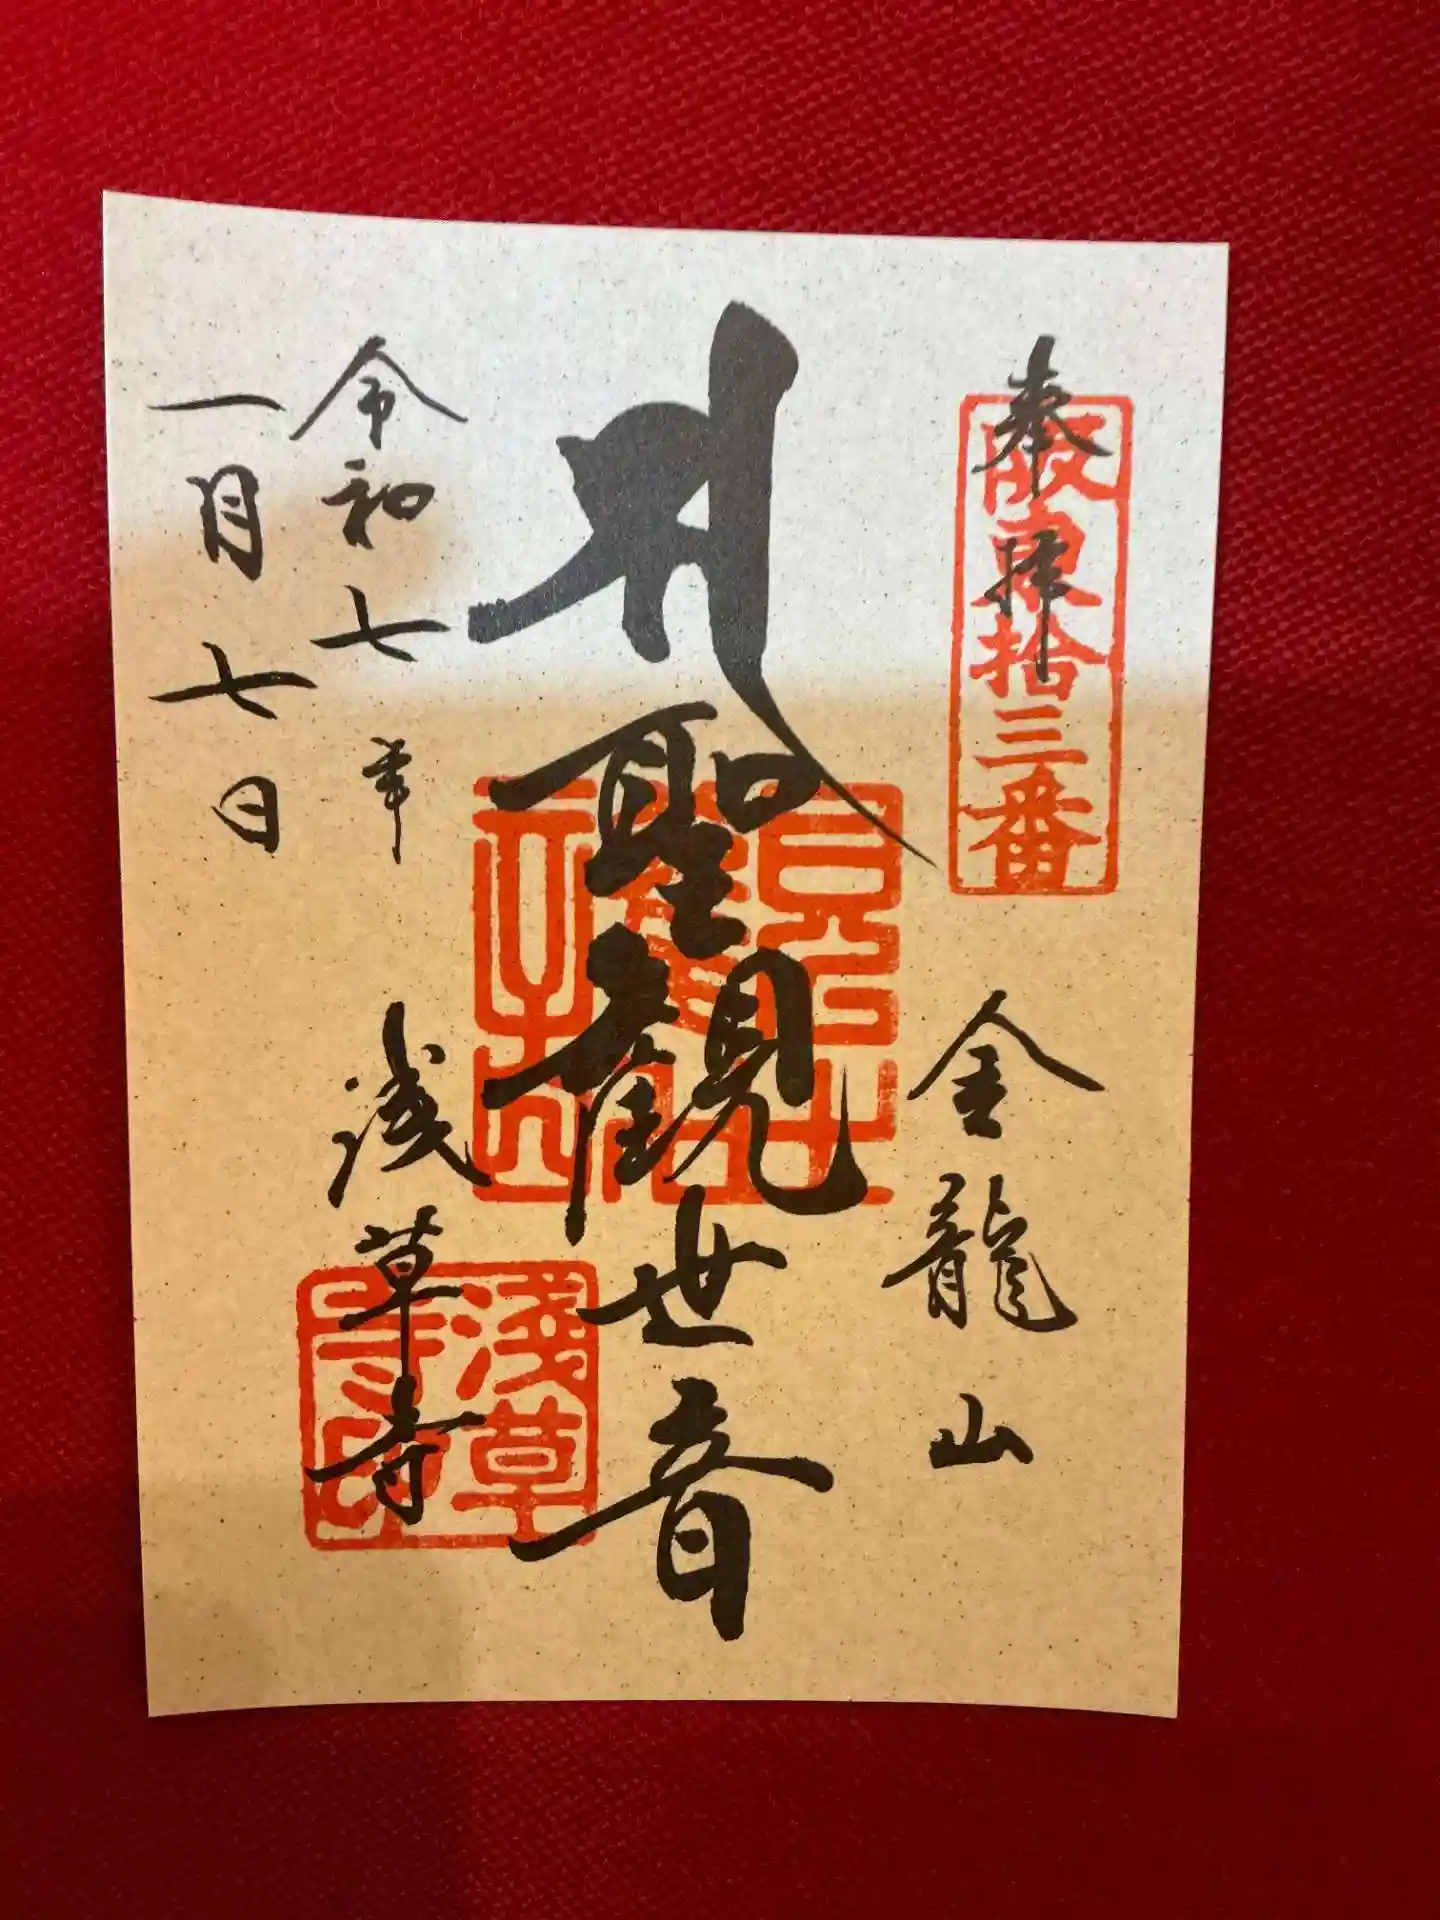 奉拝
坂東拾三番
金龍山
聖観世音
令和七年
一月七日
浅草寺
淺草
寺印